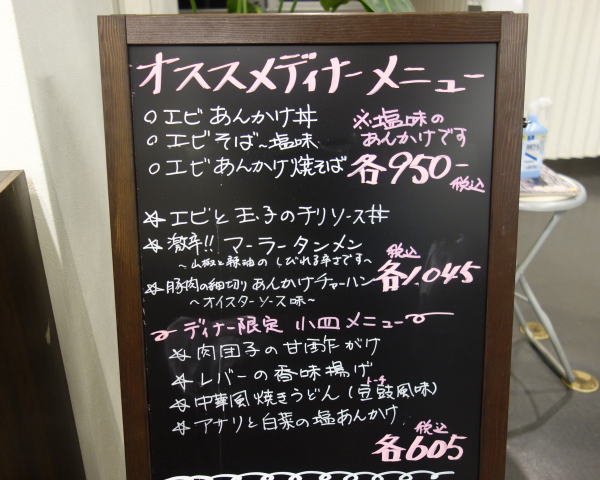 オススメディナーメニュー
○エビあんかけ丼
○エビそば〜塩味
○エビあんかけ焼そば
※塩味の
あんかけです
各950-
税込
☆エビと玉子のチリソース丼
☆激辛!! マーラータンメン
〜山椒と辣油のしびれる辛さです〜
☆豚肉の細切りあんかけチャーハン
〜オイスターソース味〜
税込
各1,045
ディナー限定 小皿メニュー
☆肉団子の甘酢がけ
☆レバーの香味揚げ
☆中華風焼きうどん(豆豉風味)
トーチ
☆アサリと白菜の塩あんかけ
税込
各605